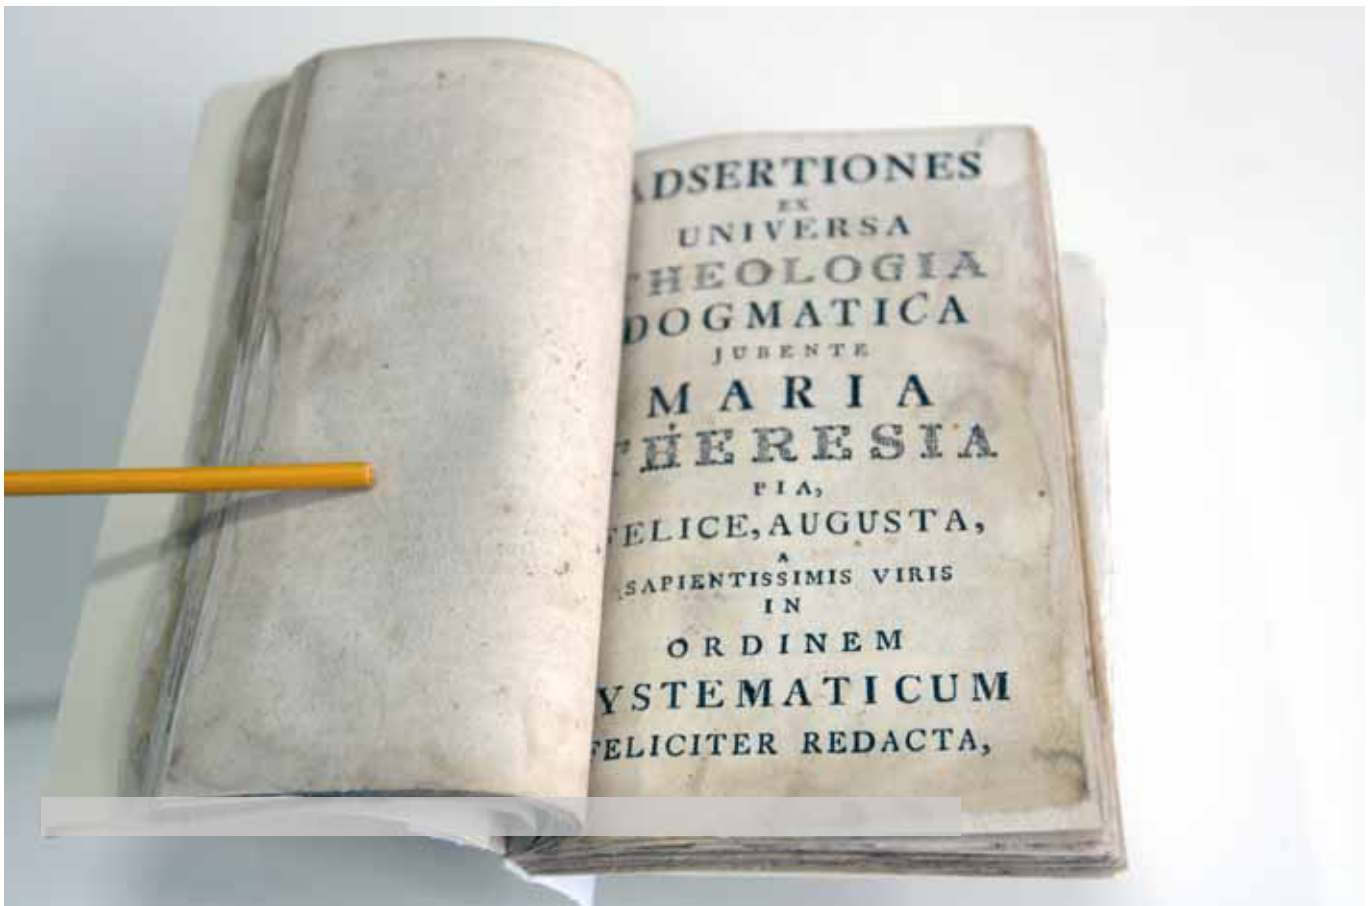 ADSERTIONES
EX
UNIVERSA
THEOLOGIA
DOGMATICA
JUBENTE
MARIA
THERESIA
PIA,
FELICE, AUGUSTA,
A
SAPIENTISSIMIS VIRIS
IN
ORDINEM
SYSTEMATICUM
FELICITER REDACTA,